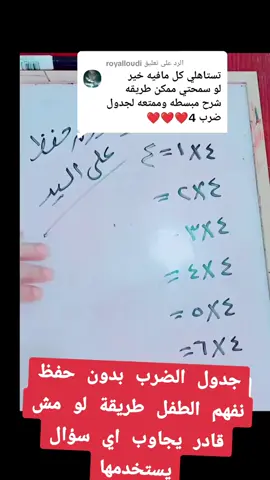 الرد على تعليق royalloudi
تستاهلي كل مافيه خير
لو سمحتي ممكن طريقه
شرح مبسطه وممتعه لجدول
ضرب 4❤️❤️❤️
حفظ
على اليد
٤×١=٤
٤×٢=
٤×٣=
٤×٤=
٤×٥=
٤×٦=
جدول الضرب بدون حفظ
نفهم الطفل طريقة لو مش
قادر يجاوب اي سؤال
يستخدمها